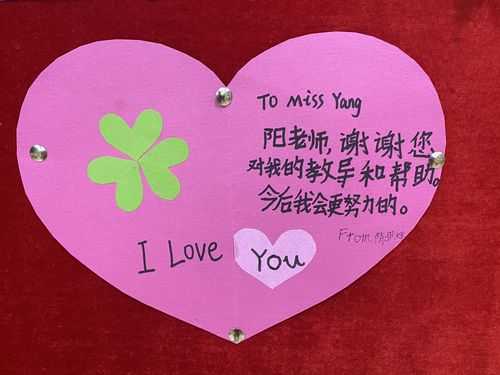 TO Miss Yang
阳老师,谢谢您
对我的教导和帮助。
今后我会更努力的。
From
I Love You